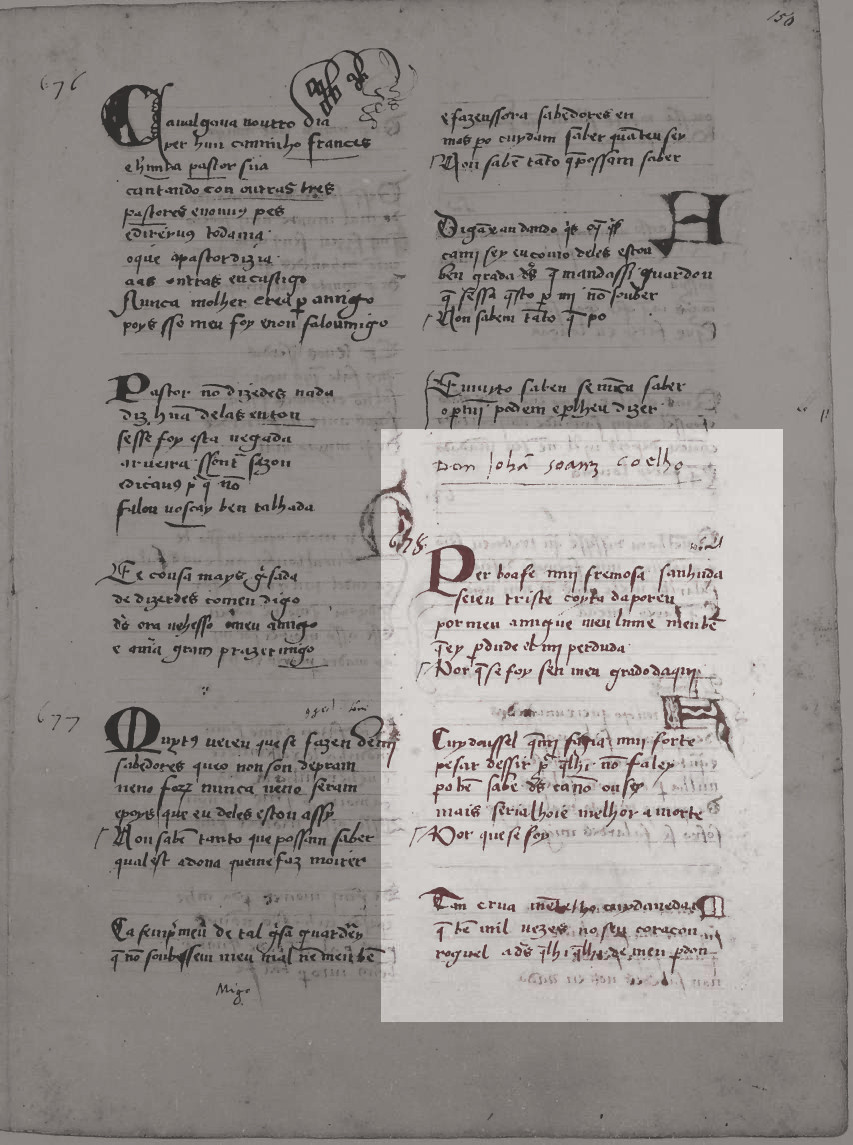 150
676
Caualgaua noutro dia
per hun caminho frances
e hunha pastor siia
cantando con outras tres
pastores e non uꝯ pes
e direyuꝯ toda uia
o que a pastor dizia
aas outras en castigo
Nunca molher crea per amigo
poys sse meu foy e non falou migo
Pastor nō dizedes nada
diz hūa delas enton
sesse foy esta uegada
ar uerra
e dicauꝯ por q̄ nō
falou uoscay ben talhada
E e cousa mays guisada
de dizerdes comeu digo
ds̄ ora uehesso meu amigo
e auia gram prazer migo
677
Quytꝯ ueien que se fazen de mī
sabedores queo non son de pram
neno forō nunca neno seram
e poys que eu deles estou assy
Non sabē tanto que possam saber
qual est a dona que me faz moirer
Ca semp̄ meu de tal guisa guardey
q̄ nō soubessem meu mal nē meu bē
Migo
e fazenssora sabedores en
mais po cuydam saber quāteu sey
Non sabē tāto q̄ possam saber
Digāxandando
ca mi sey eu como deles estou
ben grada ds̄ q̄ mandassi guardou
q̄ sēssa q̄sto per mi nō souber
Non sabem tāto q̄ po
E muyto saben se nūca saber
o per mī podem e perlheu dizer
Don Johā Soarez Coelho
678
Per boa fe mui fremosa sanhuda
seieu triste coyta da poren
por meu amigue meu lume meu bē
q̄ ey perdude el mī perduda
Por q̄ se foy sen meu grado daqui
Cuydoussel q̄mi fazia mui forte
pesar dessir por q̄lhi nō faley
po bē sabe ds̄ ca nō ousey
mais serialhoie melhor a morte
Por que se foy
Tan crua mēte lho cuyda uedar
q̄ bē mil uezes no seu coraçon
roguel a ds̄ q̄lhi
de meu perdon